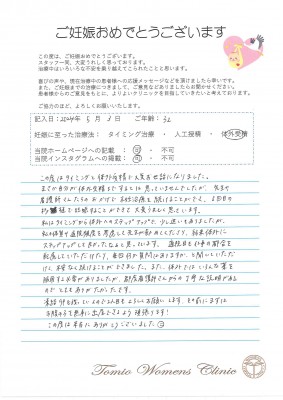 ご妊娠おめでとうございます
この度は、ご妊娠おめでとうございます。
スタッフ一同、大変うれしく思っております。
治療中はいろいろな不安を乗り越えてこられたことと思います。
喜びの声や、現在治療中の患者様への応援メッセージなどを頂けましたら幸いです。
また、ご妊娠までの治療につきまして、ご意見などありましたらお聞かせください。
患者様からのご意見をもとに、よりよいクリニックを目指していきたいと考えております。
ご協力のほど、よろしくお願いいたします。
記入日：2024年 5月 3日 ご年齢：32
妊娠に至った治療法： タイミング治療 ・ 人工授精 ・ 体外受精
当院ホームページへの掲載 ： 可 ・ 不可
当院インスタグラムへの掲載 ： 可 ・ 不可
この度はタイミングと体外受精で大変お世話になりました。
まさか自分が体外受精をするとは思っていませんでしたが、先生や
看護師さんたちのおかげで不妊治療を続けることができ、
妊娠することができて大変うれしく思っています。
私はタイミングから体外へのステップアップで、少し迷いもありましたが、
ステップアップして良かったなと思います。通院日も仕事の都合を
考慮していただけたり、毎回何か質問はありますか、と聞いていただ
け、不安なく続けることができました。また、体外ではいろんな薬を
使用する事がありましたが、看護師さんからの丁寧な説明がある
のでとてもありがたかったです。
この度は本当にありがとうございました
Tomio Womens Clinic